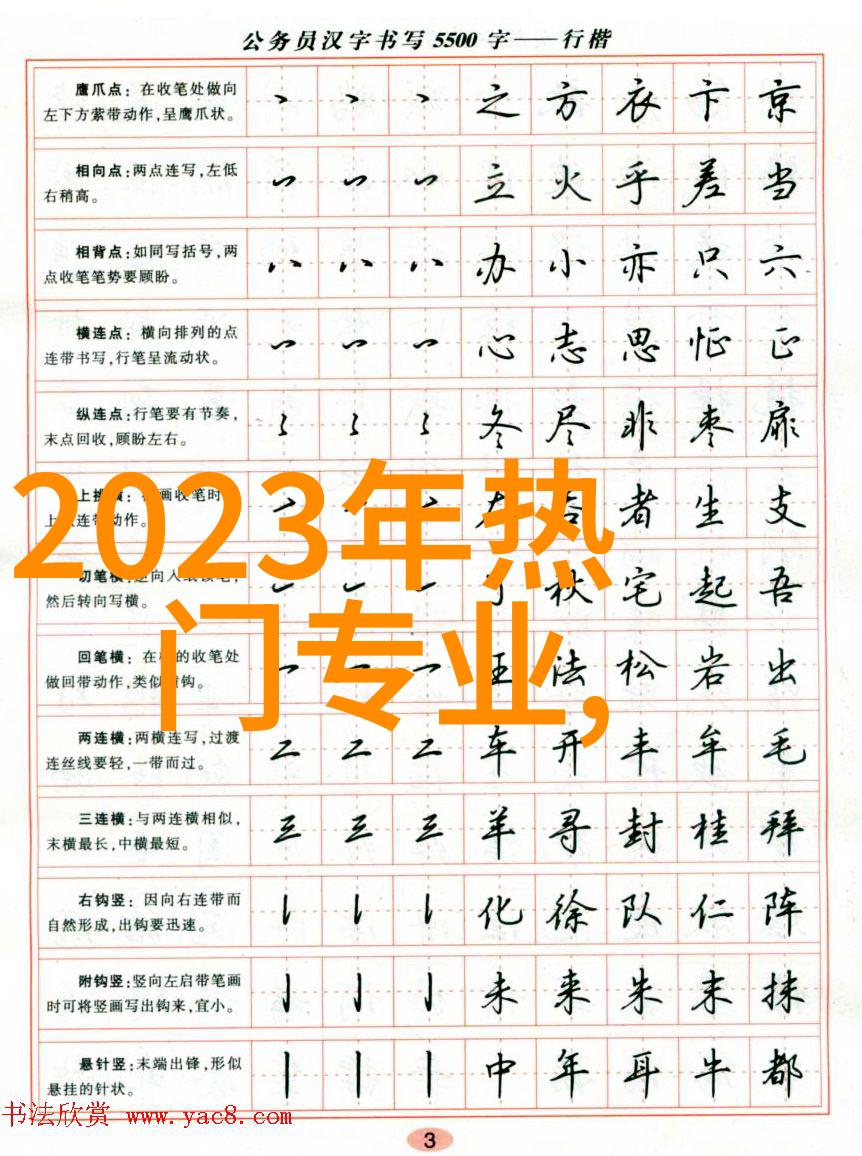 公务员汉字书写 5500 字——行楷
鹰爪点：在收笔处做向
左下方萦带动作，呈鹰爪状。
之 方 衣 卞 京
相向点：两点连写，左低
右稍高。
立 火 乎 差 当
相背点：如同写括号，两
点收笔笔势要顾盼。
办 小 亦 只 六
横连点：横向排列的点
连带书写，行笔呈流动状。
心 志 思 怔 正
纵连点：行笔要有节奏，
末点回收，顾盼左右。
冬 尽 非 枣 扉
2023年热
门专业，
上挑横：画收笔时
上连带动作。
者 生 支
切笔横：
然后转向写横。
秋 宅 起 吾
回笔横：在的收笔处
做回带动作，类似横钩。
王 法 松 岩 出
两连横：两横连写，过渡
连丝线要轻，一带而过。
车 开 丰 牟 毛
三连横：与两连横相似，
末横最长，中横最短。
羊 寻 封 桂 拜
右钩竖：因向右连带而
自然形成，出钩要迅速。
化 徐 队 仁 阵
附钩竖：竖向左启带笔画
时可将竖画写出钩来，宜小。
未 来 朱 末 抹
悬针竖：末端出锋，形似
悬挂的针状。
中 年 耳 牛 都
书法欣赏 www.yac8.com
3